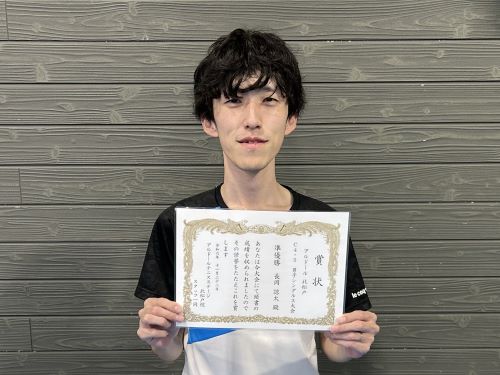 賞状
アルドール 北松戸
C4・5 男子シングルス大会
準優勝 長岡 諒太 殿
あなたは今大会にて頭書の
成績を収められましたので
その栄誉をたたえこれを賞
します
アルドールテニスステージ
北松戸校
スタッフ一同
le coq